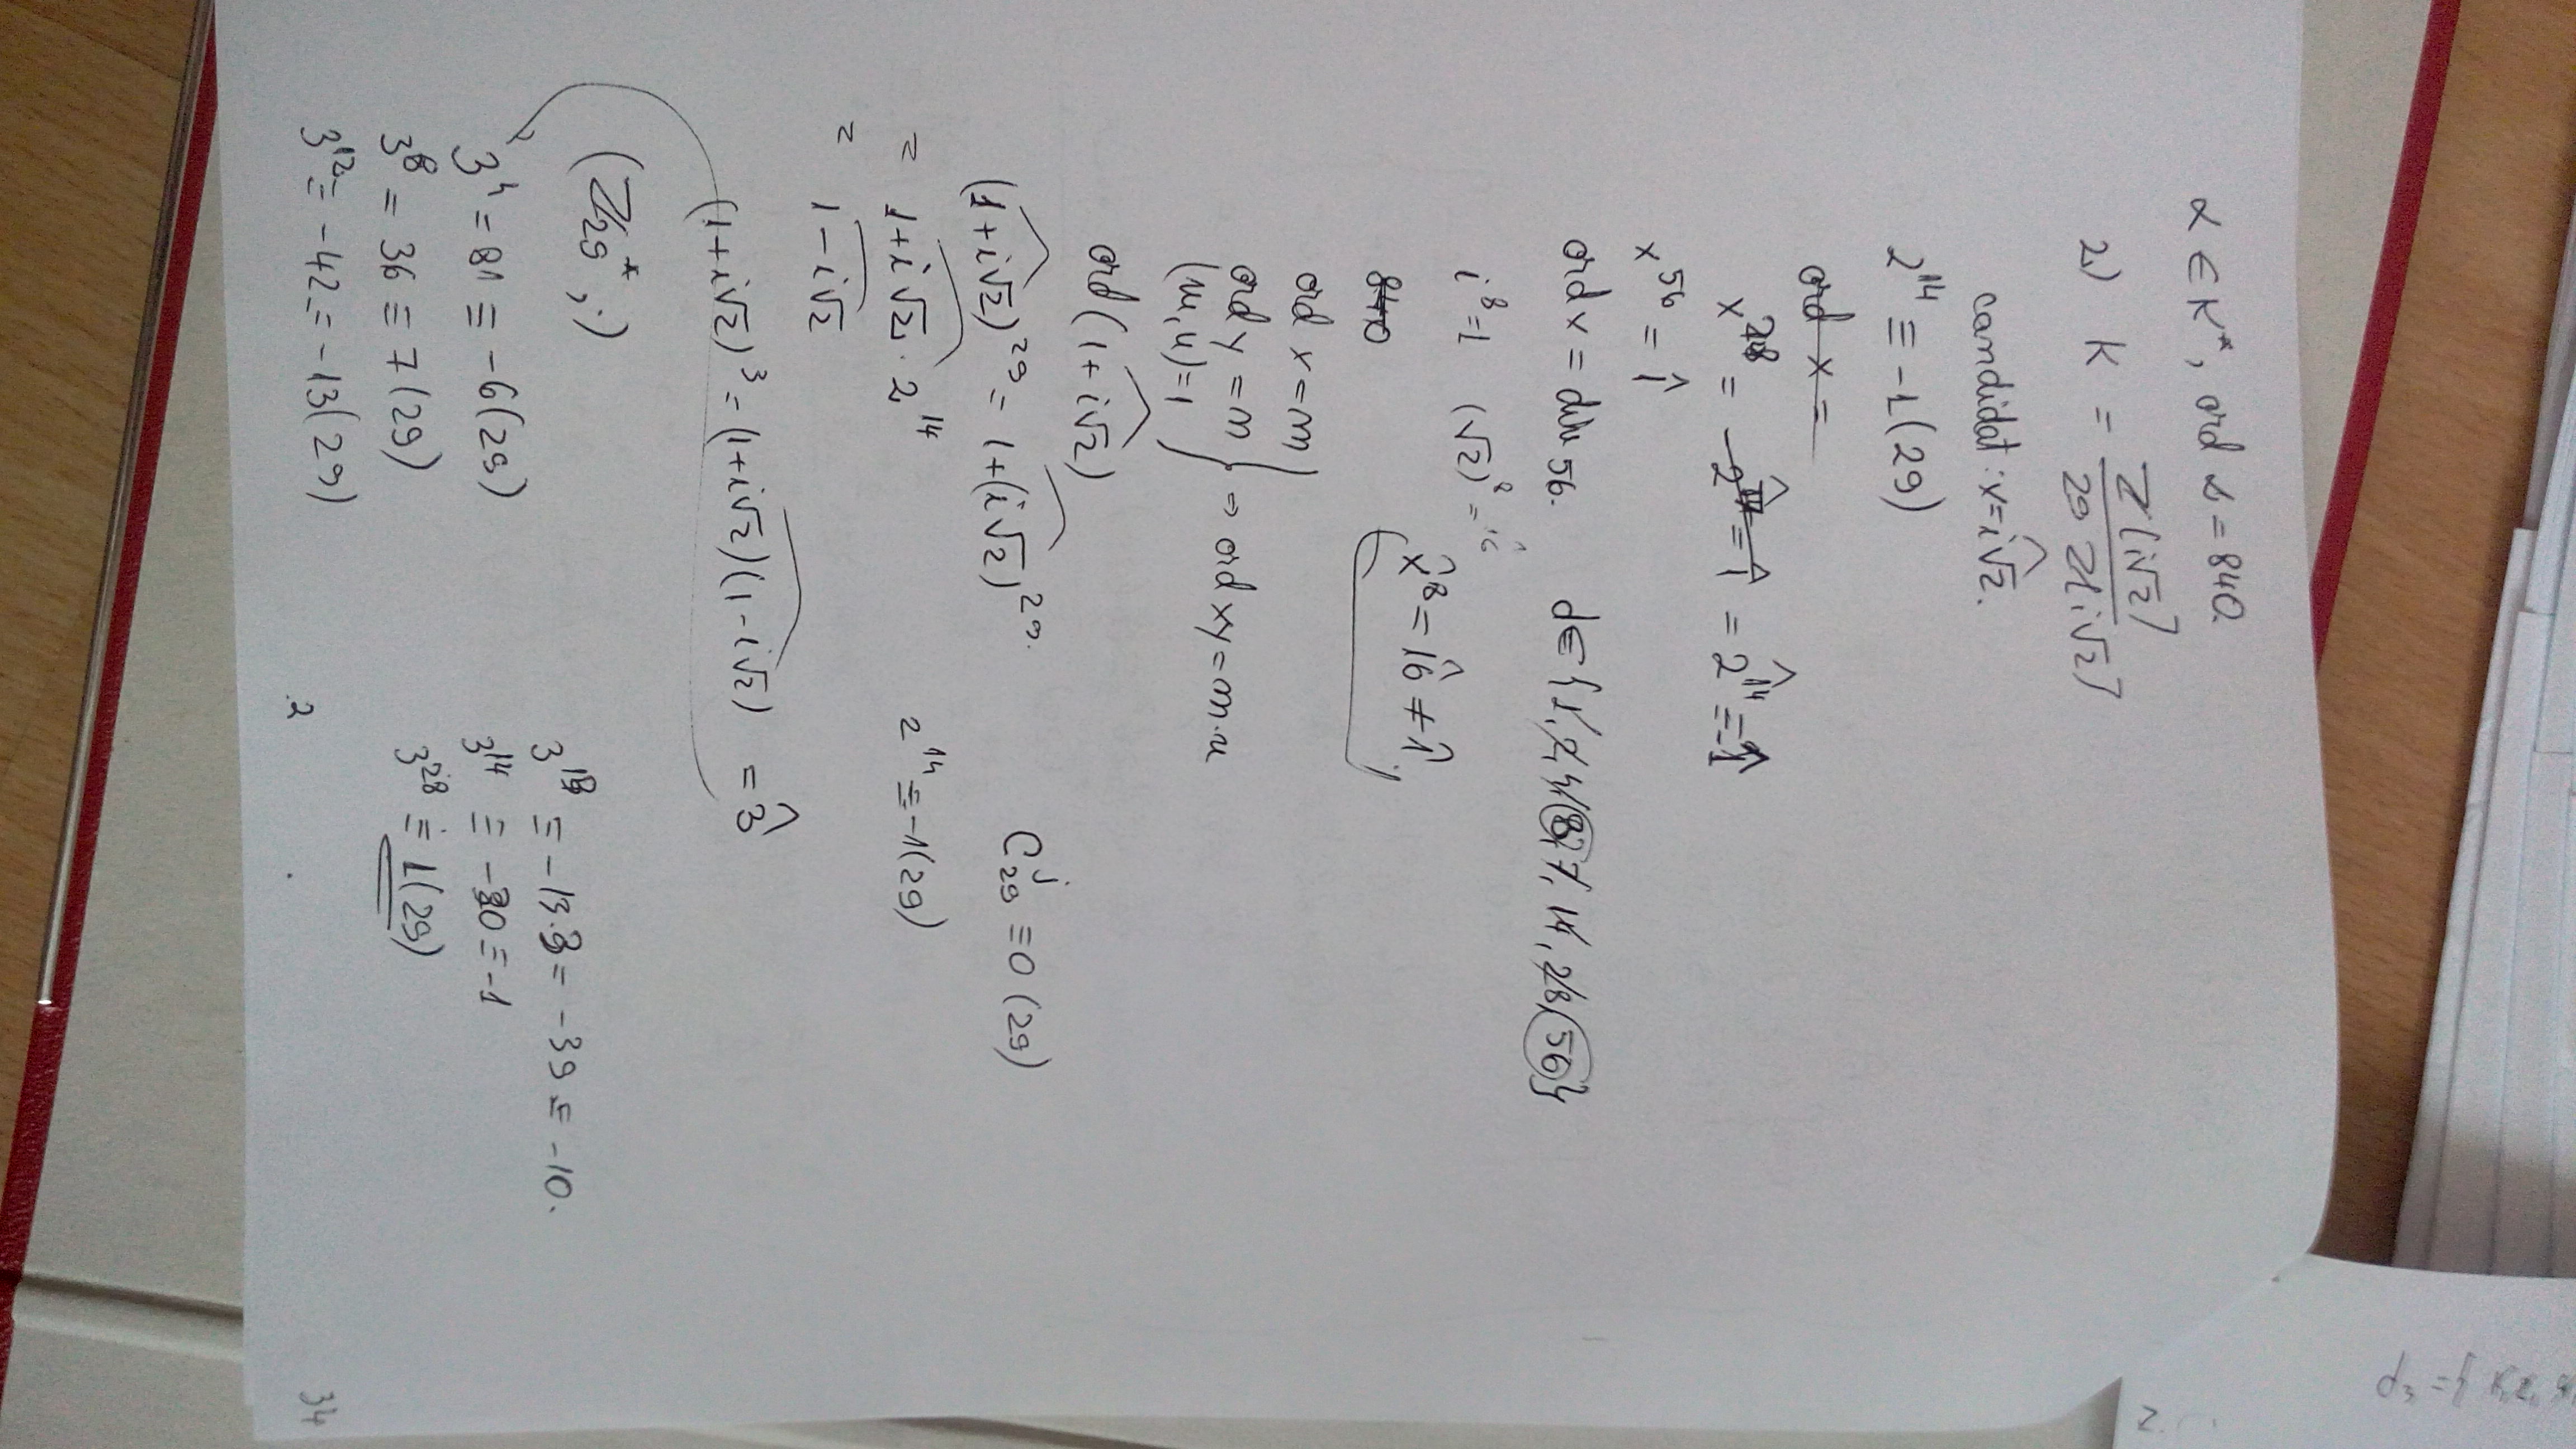 α ∈ K*, ord α = 840.
2) K = Z[i√2] / 29 Z[i√2]
candidat: x = i√2.
2^14 ≡ -1 (29)
ord x =
x^28 = -2^14 = 1 = 2^14 = -1
x^56 = 1̂
ord x = div 56. d ∈ {1, 2, 4, 8, 7, 14, 28, 56}
i^8 = 1 (√2)^8 = 16
x^8 = 16 ≠ 1,
840
ord x = m
ord y = n } ⇒ ord xy = m·n
(m, n) = 1
ord (1 + i√2)
(1 + i√2)^29 = 1 + (i√2)^29. C_29^j ≡ 0 (29)
= 1 + i√2 · 2^14 2^14 ≡ -1 (29)
= 1 - i√2
(1 + i√2)^3 = (1 + i√2)(1 - i√2) = 3̂
(Z_29*, ·)
3^4 = 81 ≡ -6 (29)
3^8 = 36 ≡ 7 (29)
3^12 = -42 = -13 (29)
3^13 ≡ -13·3 = -39 ≡ -10.
3^14 ≡ -30 = -1
3^28 ≡ 1 (29)
2
34
2.